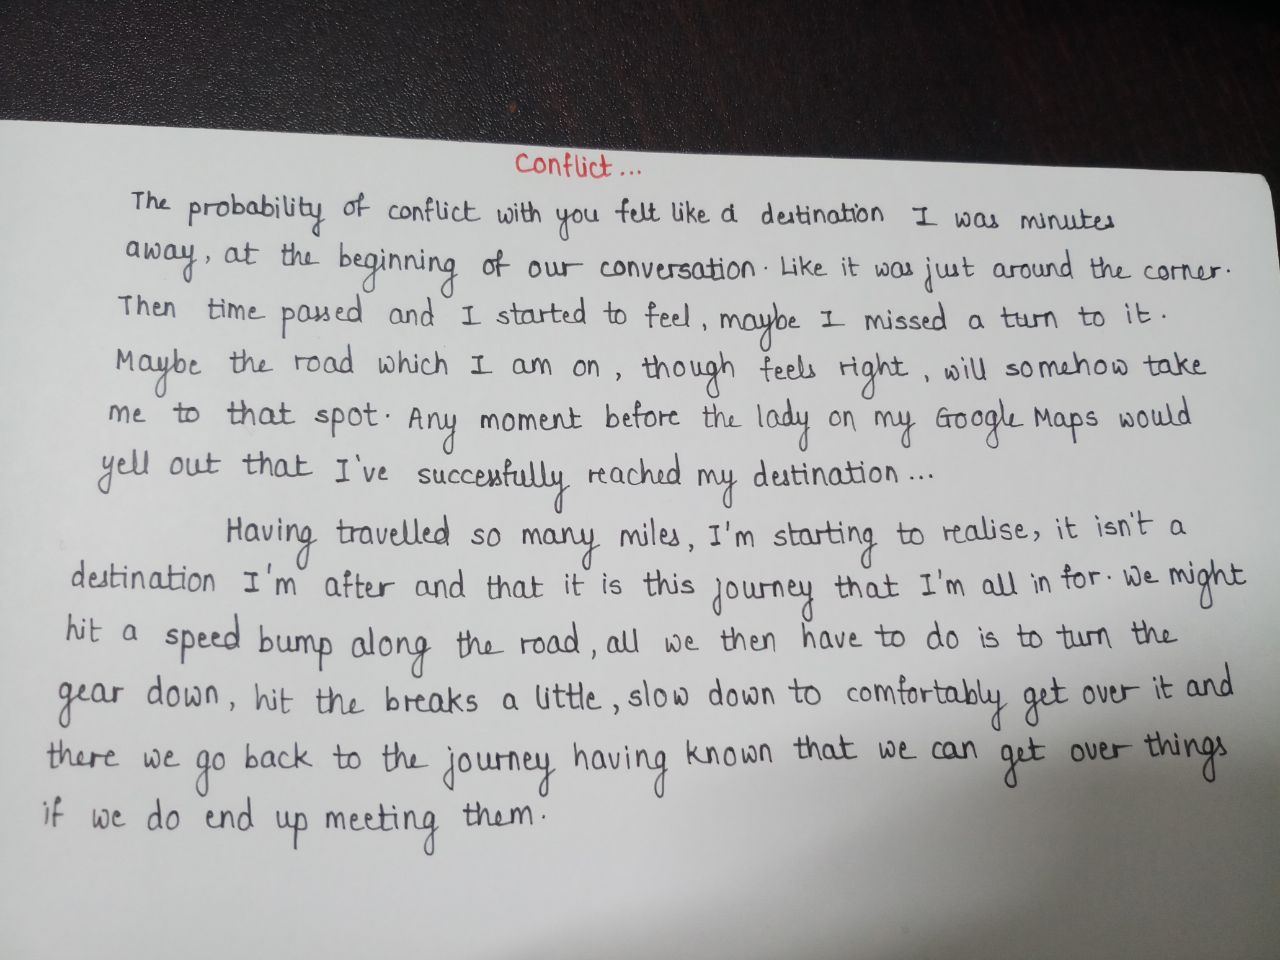 Conflict...
The probability of conflict with you felt like a destination I was minutes
away, at the beginning of our conversation. Like it was just around the corner.
Then time passed and I started to feel, maybe I missed a turn to it.
Maybe the road which I am on, though feels right, will somehow take
me to that spot. Any moment before the lady on my Google Maps would
yell out that I've successfully reached my destination...
Having travelled so many miles, I'm starting to realise, it isn't a
destination I'm after and that it is this journey that I'm all in for. We might
hit a speed bump along the road, all we then have to do is to turn the
gear down, hit the breaks a little, slow down to comfortably get over it and
there we go back to the journey having known that we can get over things
if we do end up meeting them.